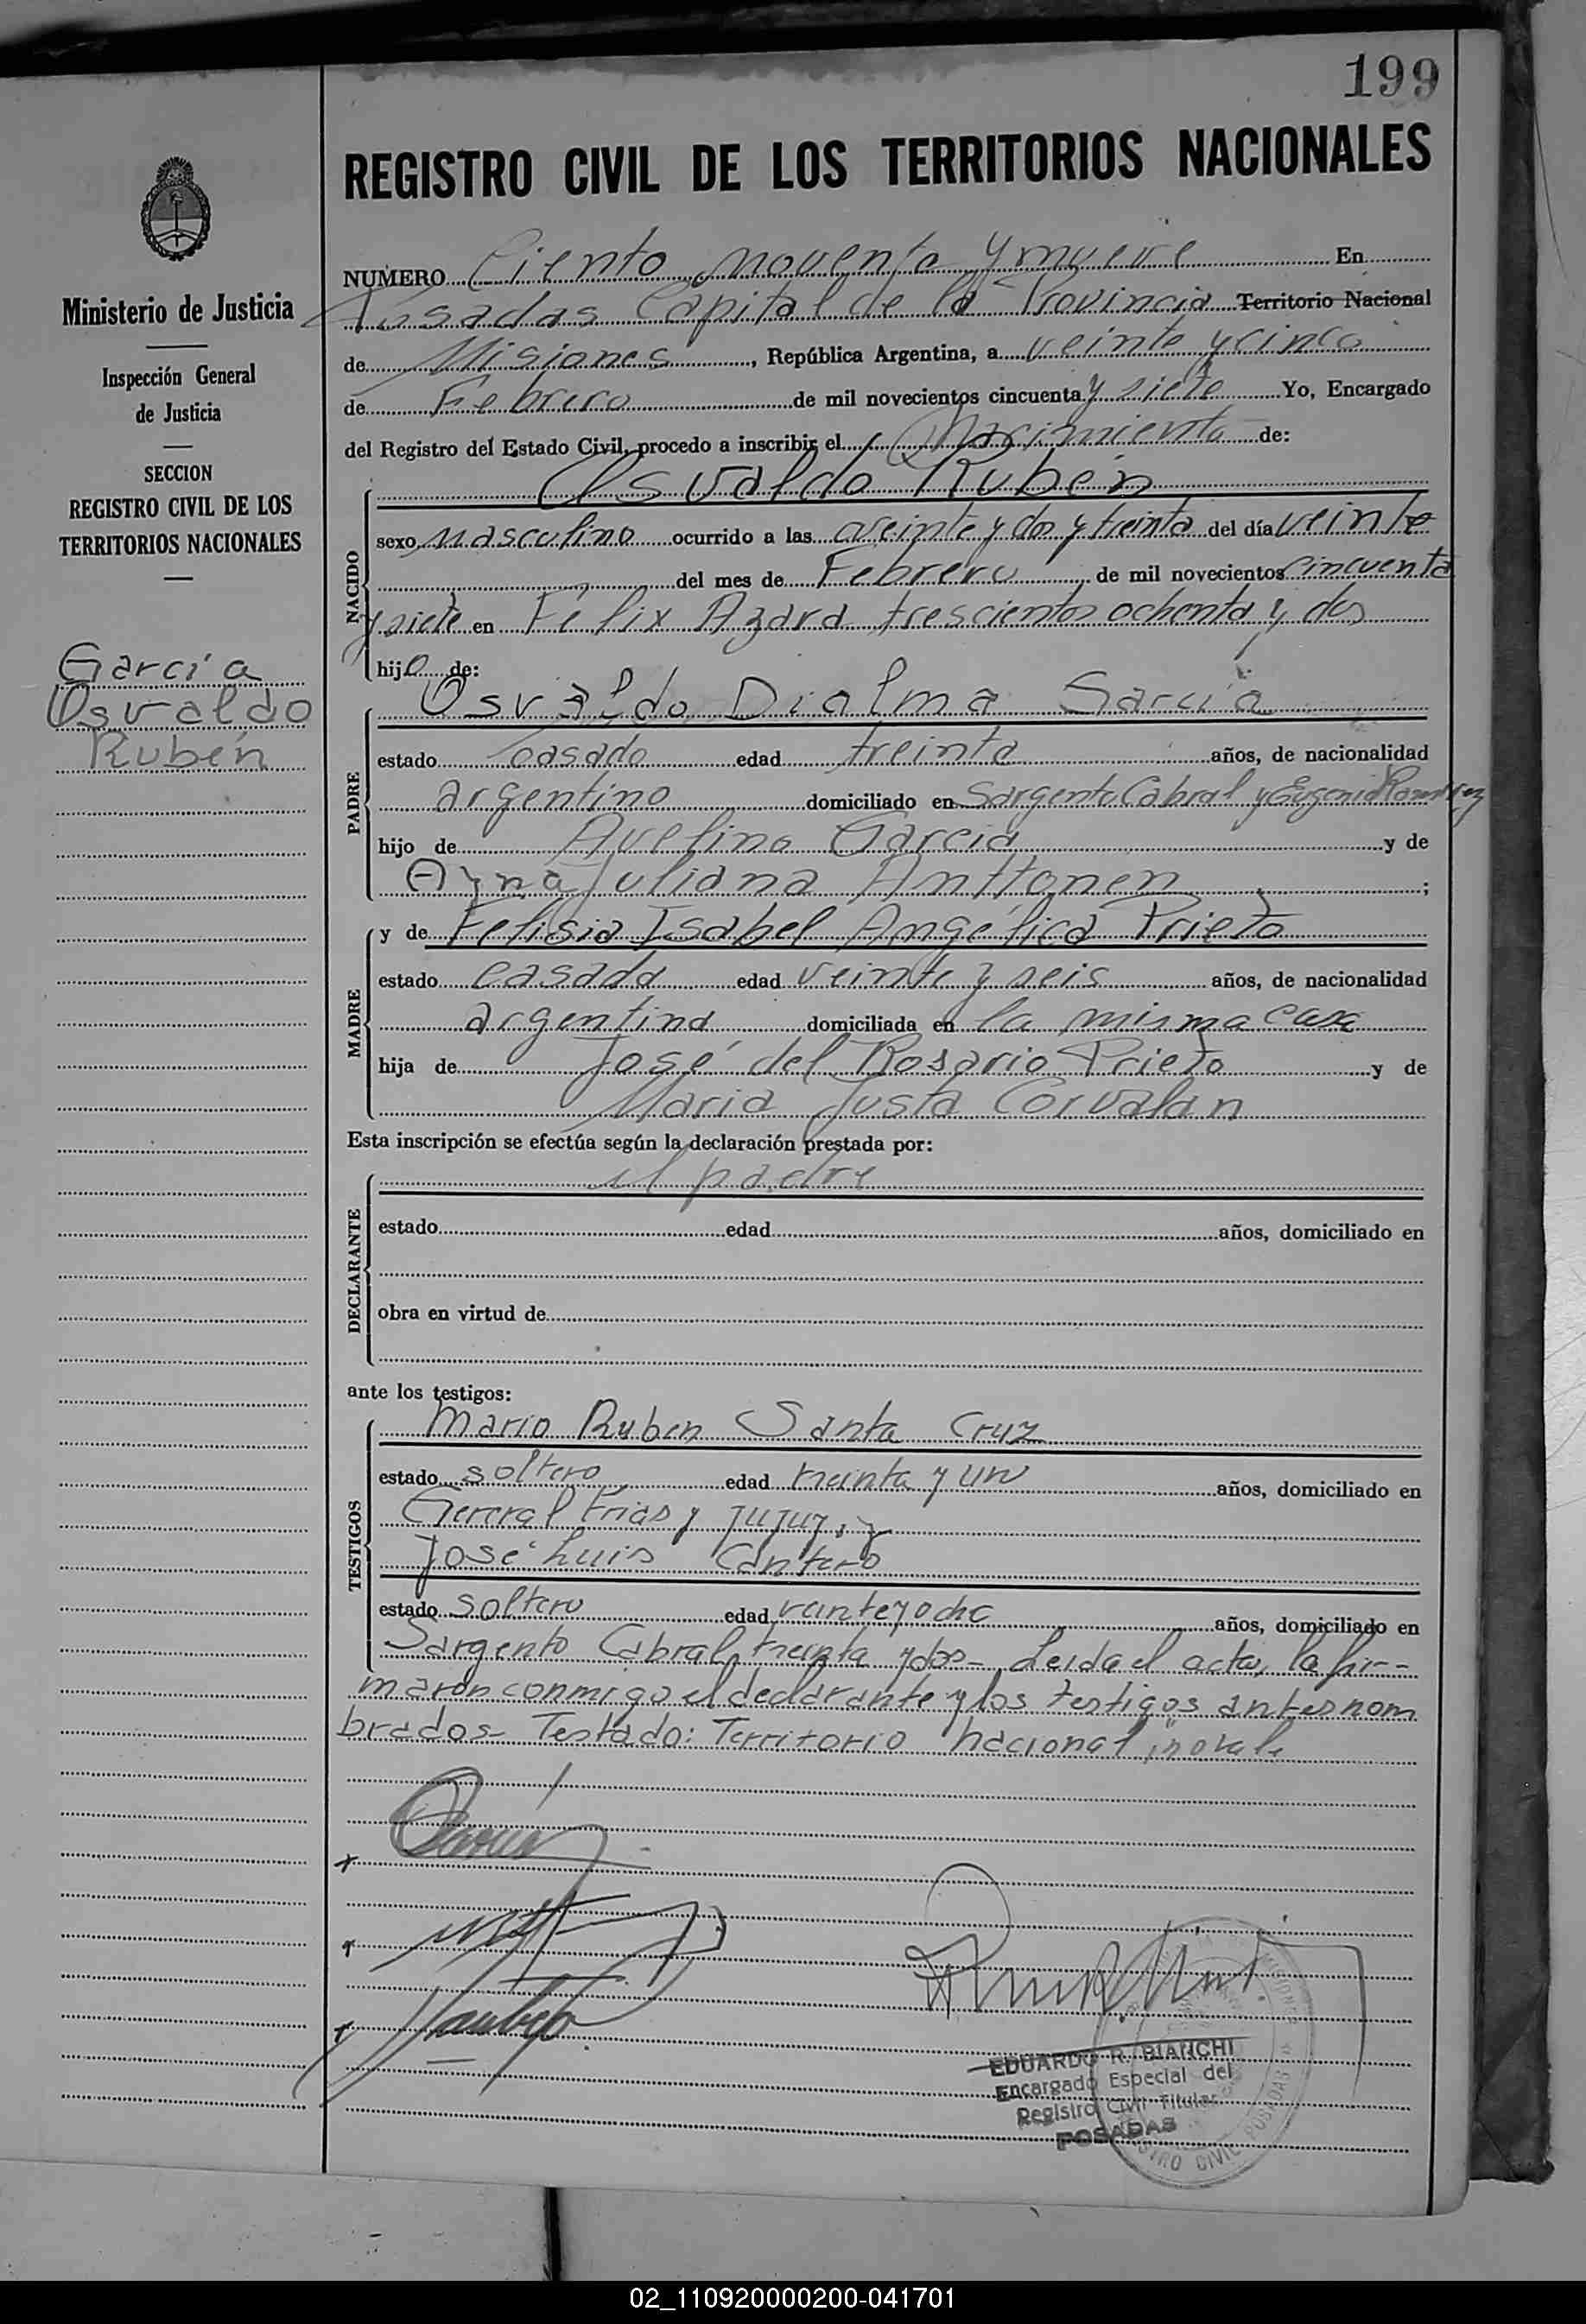 199
REGISTRO CIVIL DE LOS TERRITORIOS NACIONALES
Ministerio de Justicia
Inspección General
de Justicia
SECCION
REGISTRO CIVIL DE LOS
TERRITORIOS NACIONALES
García
Osvaldo
Rubén
NUMERO Ciento noventa y nueve En
Posadas Capital de la Provincia Territorio Nacional
de Misiones, República Argentina, a veinte y cinco
de Febrero de mil novecientos cincuenta y siete Yo, Encargado
del Registro del Estado Civil, procedo a inscribir el Nacimiento de:
NACIDO
Osvaldo Rubén
sexo masculino ocurrido a las veinte y dos y treinta del día veinte
del mes de Febrero de mil novecientos cincuenta
y siete en Félix Azara trescientos ochenta y dos
hijo de:
PADRE
Osvaldo Dialma García
estado casado edad treinta años, de nacionalidad
argentino domiciliado en Sargento Cabral y Eugenio Ramirez
hijo de Avelino García y de
Juliana Anttonen;
MADRE
y de Felisia Isabel Angélica Prieto
estado casada edad veinte y seis años, de nacionalidad
argentina domiciliada en la misma casa
hija de José del Rosario Prieto y de
Maria Justa Corvalan
Esta inscripción se efectúa según la declaración prestada por:
DECLARANTE
el padre
estado edad años, domiciliado en
obra en virtud de
ante los testigos:
TESTIGOS
Mario Ruben Santa Cruz
estado soltero edad treinta y un años, domiciliado en
General Frias y Jujuy, y
José Luis Cantero
estado soltero edad veinte y ocho años, domiciliado en
Sargento Cabral treinta y dos- Leida el acta, la fir-
maron conmigo el declarante y los testigos antes nom
brados- Testado: Territorio nacional, no vale
EDUARDO R. BIANCHI
Encargado Especial del
Registro Civil Titular
POSADAS
02_110920000200-041701